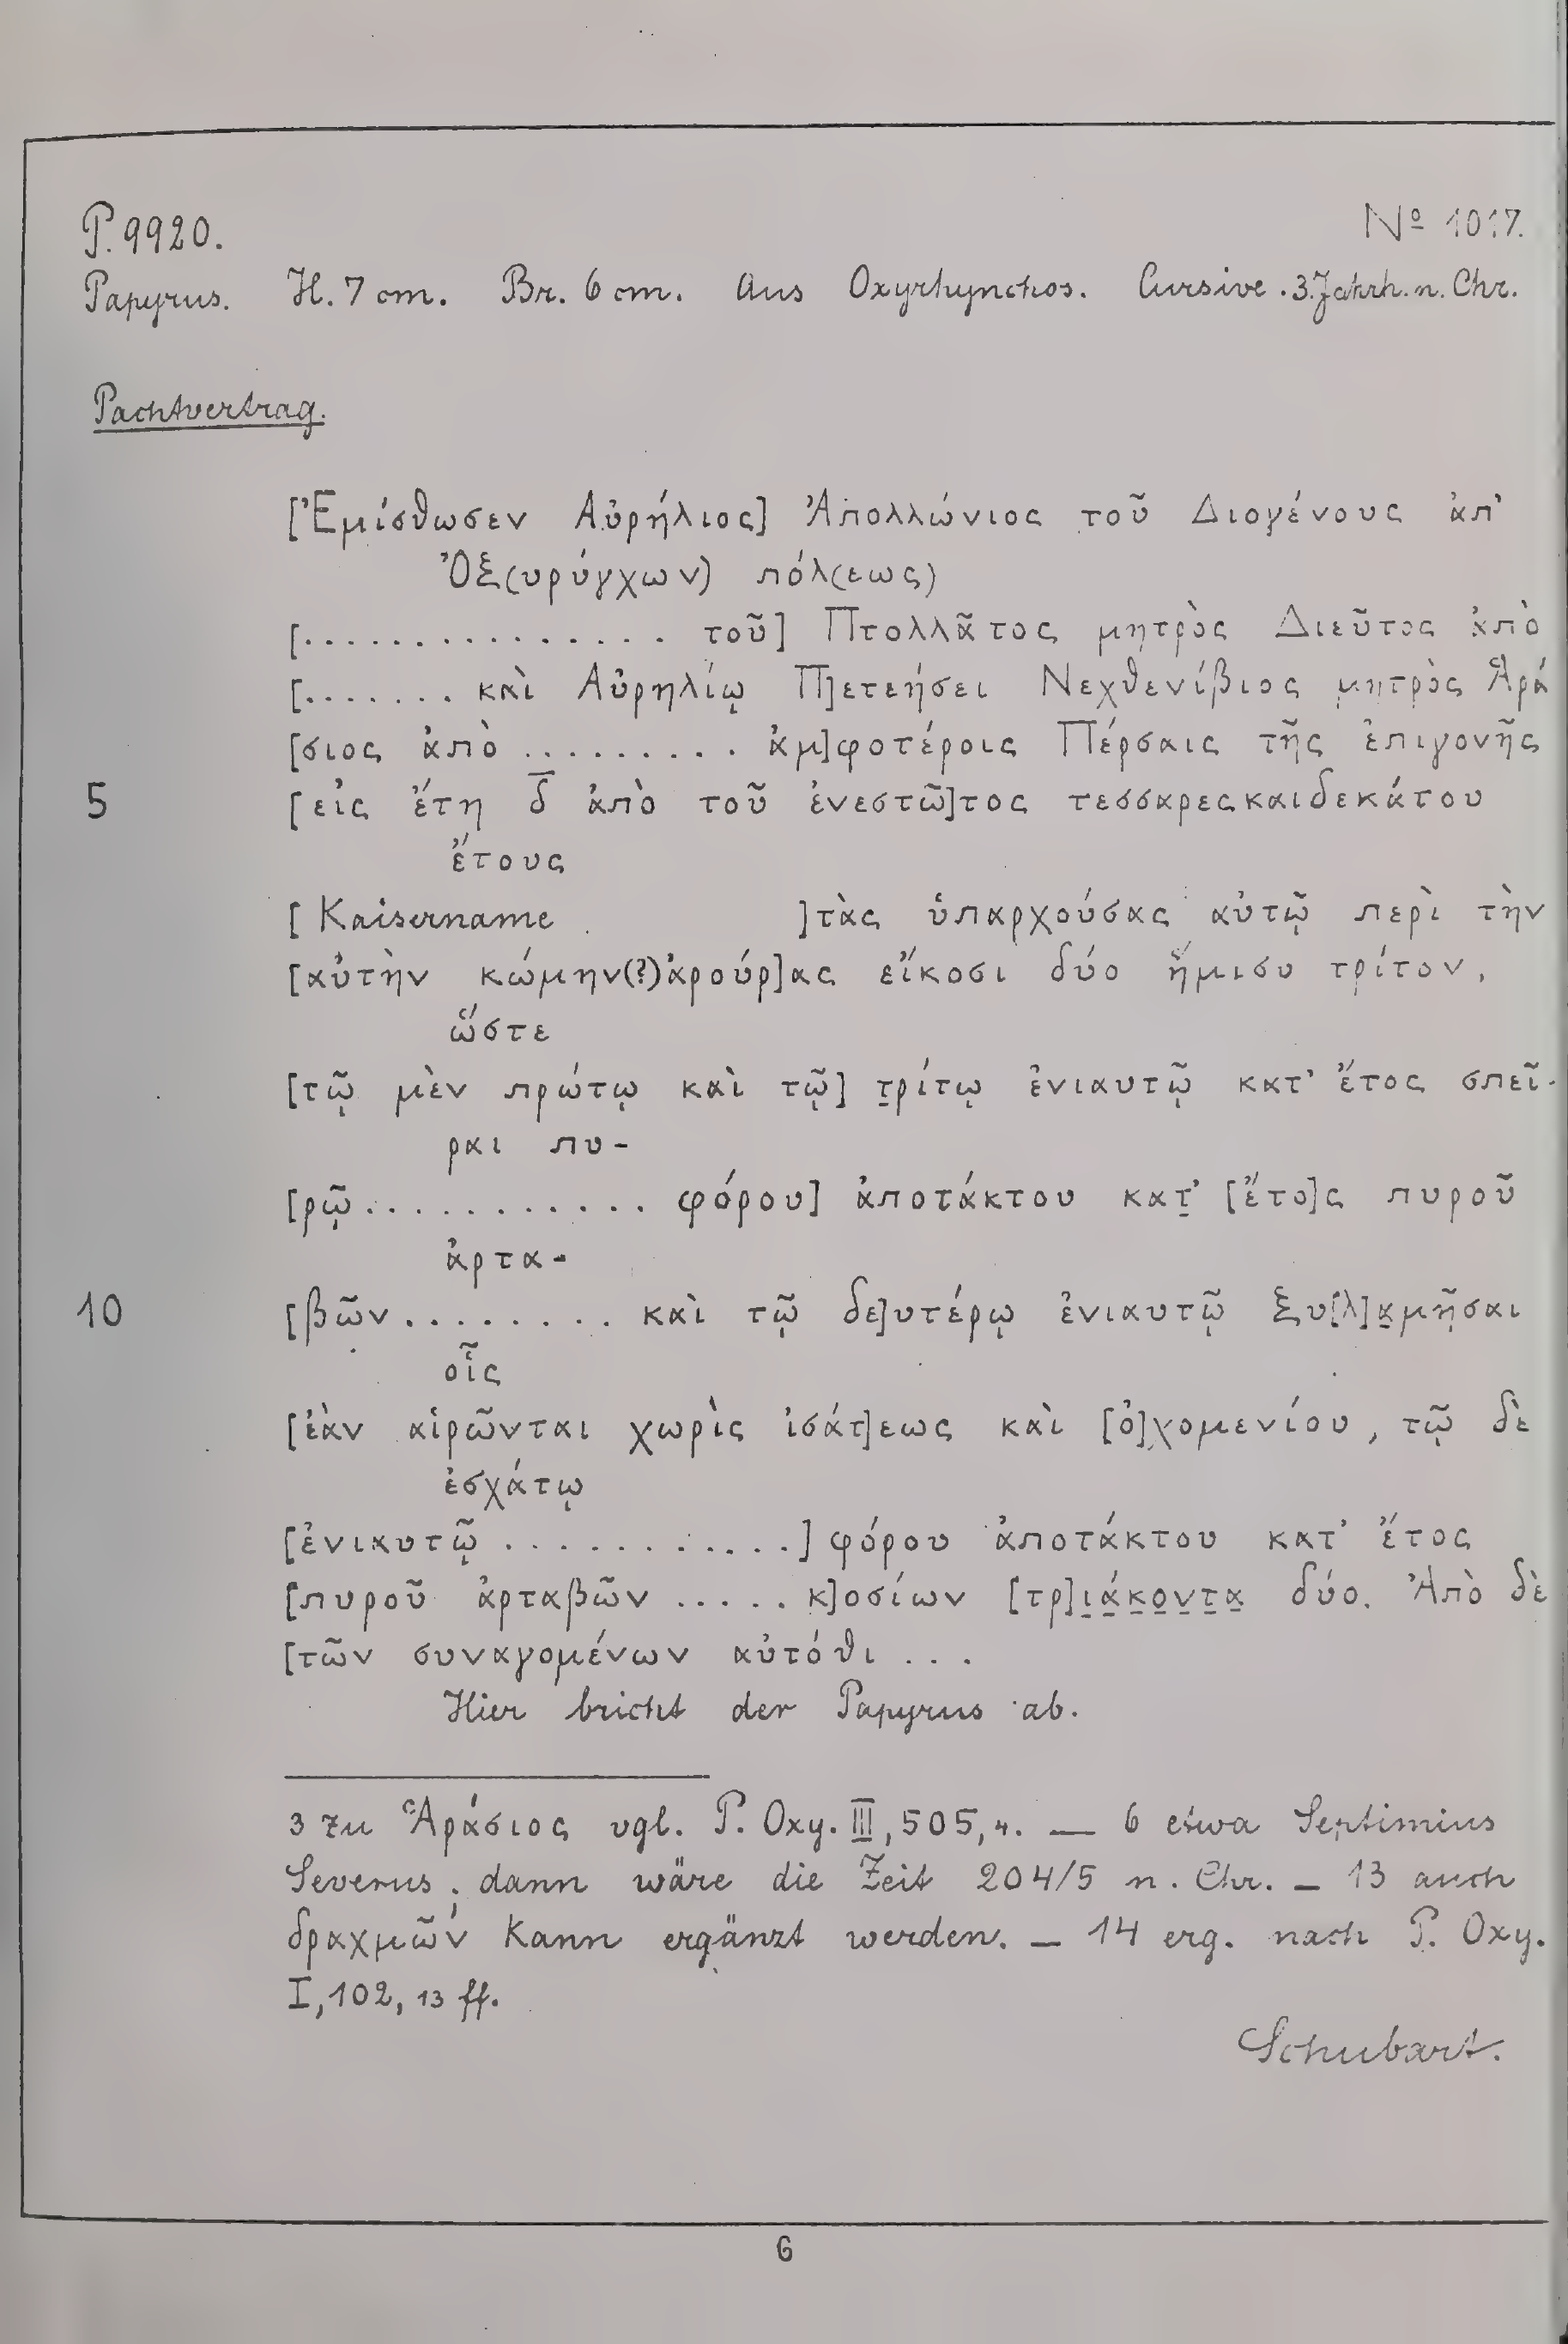 P. 9920. Nº 1017.
Papyrus. H. 7 cm. Br. 6 cm. Aus Oxyrhynchos. Cursive. 3. Jahrh. n. Chr.
Pachtvertrag.
[Ἐμίσθωσεν Αὐρήλιος] Ἀπολλώνιος τοῦ Διογένους ἀπ'
Ὀξ(υρύγχων) πόλ(εως)
[............... τοῦ] Πτολλᾶτος μητρὸς Διεῦτος ἀπὸ
[....... καὶ Αὐρηλίῳ Π]ετεήσει Νεχθενίβιος μητρὸς Ἁρά
[σιος ἀπὸ ......... ἀμ]φοτέροις Πέρσαις τῆς ἐπιγονῆς
5 [εἰς ἔτη δ̅ ἀπὸ τοῦ ἐνεστῶ]τος τεσσαρεςκαιδεκάτου
ἔτους
[ Kaisername ]τὰς ὑπαρχούσας αὐτῷ περὶ τὴν
[αὐτὴν κώμην(?)ἀρούρ]ας εἴκοσι δύο ἥμισυ τρίτον,
ὥστε
[τῷ μὲν πρώτῳ καὶ τῷ] τ̣ρίτῳ ἐνιαυτῷ κατ' ἔτος σπεῖ-
ραι πυ-
[ρῷ............ φόρου] ἀποτάκτου κατ̣' [ἔτο]ς πυροῦ
ἀρτα-
10 [βῶν......... καὶ τῷ δε]υτέρῳ ἐνιαυτῷ ξυ[λ]α̣μῆσαι
οἷς
[ἐὰν αἱρῶνται χωρὶς ἰσάτ]εως καὶ [ὀ]χομενίου, τῷ δὲ
ἐσχάτῳ
[ἐνιαυτῷ ............] φόρου ἀποτάκτου κατ' ἔτος
[πυροῦ ἀρταβῶν ..... κ]οσίων [τρ]ι̣ά̣κ̣ο̣ν̣τ̣α̣ δύο. Ἀπὸ δὲ
[τῶν συναγομένων αὐτόθι ...
Hier bricht der Papyrus ab.
3 zu Ἁράσιος vgl. P. Oxy. III, 505, 4. — 6 etwa Septimius
Severus; dann wäre die Zeit 204/5 n. Chr. — 13 auch
δραχμῶν kann ergänzt werden. — 14 erg. nach P. Oxy.
I, 102, 13 ff.
Schubart.
6